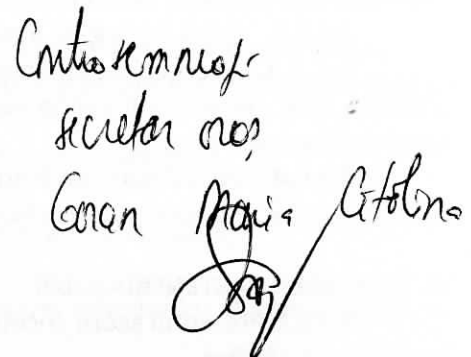 Contrasemnează
secretar oraș
Goran Maria Cătălina